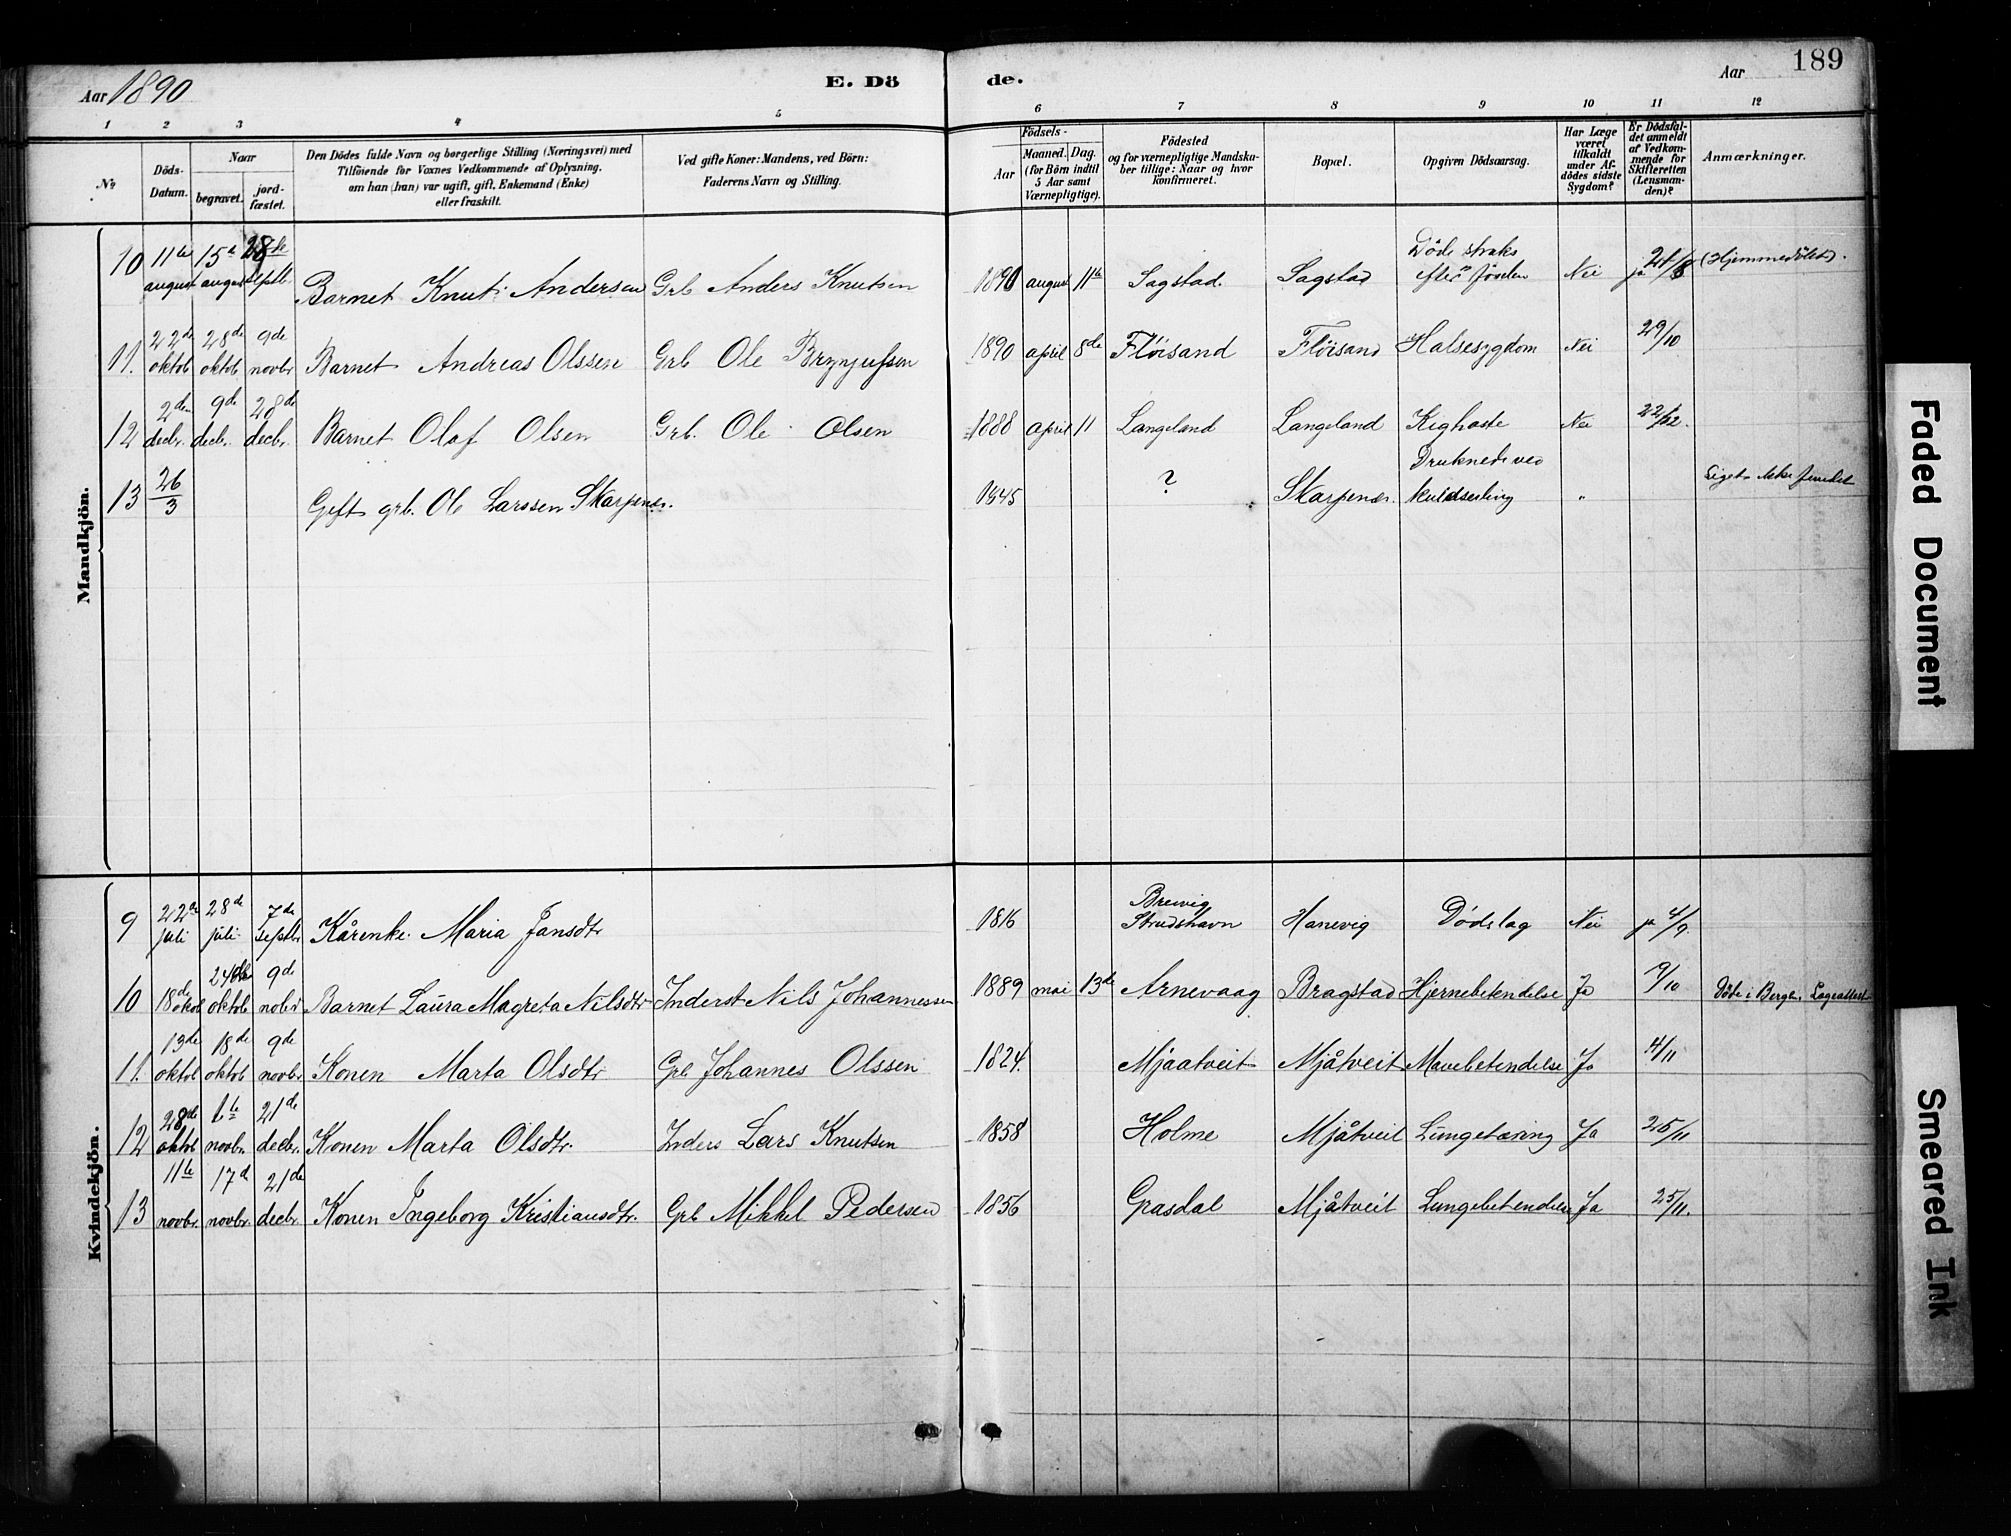 Aar 1890
E. Dö
de.
Aar 189
1 2 3 4 5 6 7 8 9 10 11 12
No
Döds-
Datum.
Naar
begravet.
jord-
fæstet.
Den Dödes fulde Navn og borgerlige Stilling (Næringsvei) med
Tilföiende for Voxnes Vedkommende af Oplysning,
om han (hun) var ugift, gift, Enkemand (Enke)
eller fraskilt.
Ved gifte Koner: Mandens, ved Börn:
Faderens Navn og Stilling.
Födsels-
Aar
Maaned. Dag.
(for Börn indtil
5 Aar samt
Værnepligtige).
Födested
og for værnepligtige Mandska-
ber tillige: Naar og hvor
konfirmeret.
Bopæl.
Opgiven Dödsaarsag.
Har Læge
været
tilkaldt
under Af-
dödes sidste
Sygdom?
Er Dödsfal-
det anmeldt
af Vedkom-
mende for
Skifteretten
(Lensman-
den)?
Anmærkninger.
Mandkjön.
10 11te august 15de august septb. Barnet Knut Andersen Grb Anders Knutsen 1890 august 11te Sagstad Sagstad Döde straks efter Nei ja (Hjemmedöbt).
11. 22de oktob 28de oktob 9de novbr Barnet Andreas Olssen Grb Ole Brynjulfsen 1890 april 8de Flöisand Flöisand Halsesygdom Nei 29/10
12 2den decbr. 9de decbr. 28de decbr. Barnet Olaf Olsen Grb. Ole Olsen 1888 april 11 Langeland Langeland Kighoste Nei 22/12.
13 26/3 Gift grb. Ole Larssen Skarpenes. 1845 ? Skarpenes. Druknede ved kuldseiling " Liget ikke fundet
Kvindekjön.
9 22de juli 28de juli 7de septbr Kårenke Maria Jansdtr 1816 Brevig Hanevig Dödslag Nei ja 4/9.
10 18de oktob 24de oktob 9de nobr Barnet Laura Magreta Nilsdtr Inderst Nils Johannessen 1889 mai 13de Arnevaag Bragstad Hjernebetendelse Ja Döde i Berge.
11. 13de oktob 18de oktob 9de novbr Konen Marta Olsdtr Grb Johannes Olssen 1824. Mjaatveit Mjåtveit Mavebetendelse Ja 4/11
12 28de oktob 1te novbr 21de decbr. Konen Marta Olsdtr. Inders Lars Knutsen 1858 Holme Mjåtveit Lungetæring Ja 25/11
13 11te novbr. 17d novbr. 21de decbr Konen Ingeborg Kristiansdtr. Grb Mikkel Pedersen 1856 Grasdal Mjåtveit Lungebetendelse Ja 25/11.
Faded Document
Smeared Ink